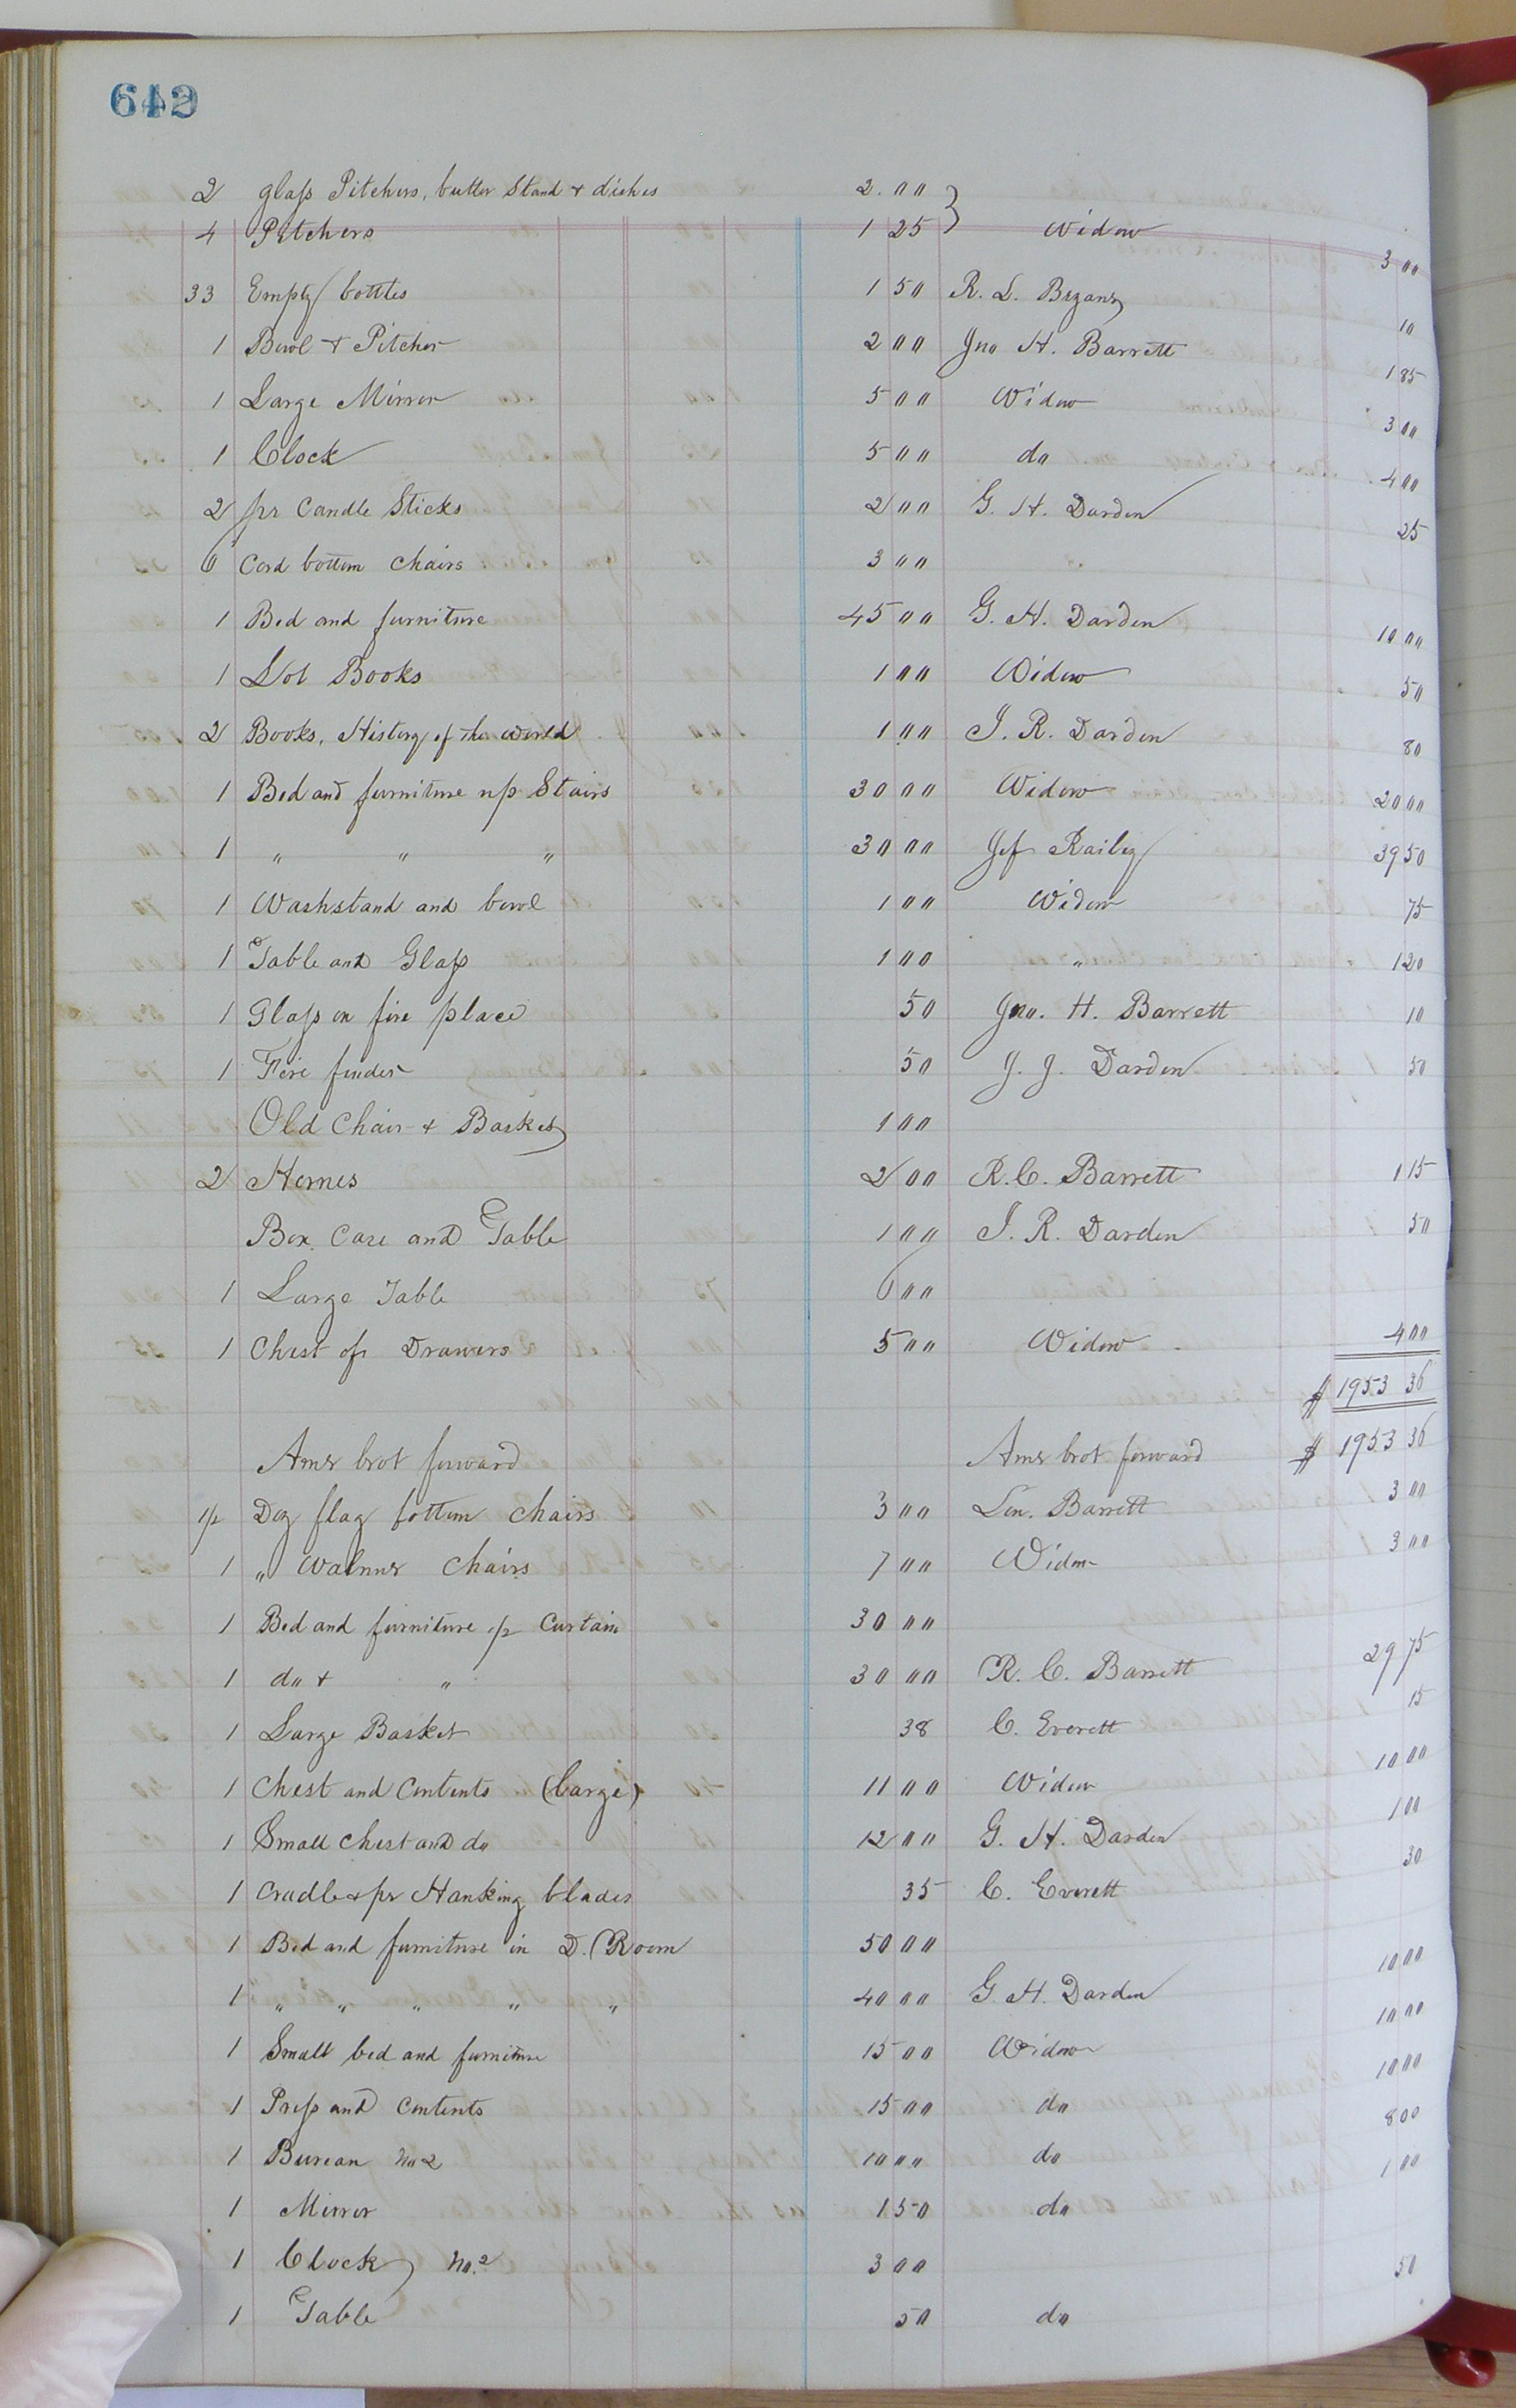 642
2 glass Pitchers, butter Stand & dishes 2.00
4 Pitchers 1 25 } Widow 3 00
33 Empty bottles 1 50 R. L. Bryan 10
1 Bowl & Pitcher 2 00 Jno H. Barrett 1 85
1 Large Mirror 5 00 Widow 3 00
1 Clock 5 00 do 4 00
2 pr Candle Sticks 2 00 G. H. Darden 25
6 Cord bottom chairs 3 00
1 Bed and furniture 45 00 G. H. Darden 10 00
1 Lot Books 1 00 Widow 50
2 Books, History of the World 1 00 J. R. Darden 80
1 Bed and furniture up Stairs 30 00 Widow 20 00
1 " " " 30 00 Jef Railey 39 50
1 Washstand and bowl 1 00 Widow 75
1 Table and Glass 1 00 " 1 20
1 Glass on fire place 50 Jno. H. Barrett 10
1 Fire fender 50 J. J. Darden 50
Old Chair & Basket 1 00
2 2 00 R. C. Barrett 1 15
Box, Case and Table 1 00 J. R. Darden 50
1 Large Table 6 00
1 Chest of Drawers 5 00 Widow 4 00
$ 1953 36
Amt brot forward Amt brot forward $ 1953 36
1/2 Doz flag bottom chairs 3 00 Len. Barrett 3 00
1 " Walnut Chairs 7 00 Widow 3 00
1 Bed and furniture & Curtain 30 00
1 do & " 30 00 R. C. Barrett 29 75
1 Large Basket 38 C. Everett 15
1 Chest and Contents (large) 11 00 Widow 10 00
1 Small Chest and do 12 00 G. H. Darden 1 00
1 Cradle & pr Hanking blades 35 C. Everett 30
1 Bed and furniture in D. Room 50 00
1 " " " " " 40 00 G. H. Darden 10 00
1 Small bed and furniture 15 00 Widow 10 00
1 Press and Contents 15 00 do 10 00
1 Bureau No 2 10 00 do 8 00
1 Mirror 1 50 do 1 00
1 Clock No. 2 3 00
1 Table 50 do 50